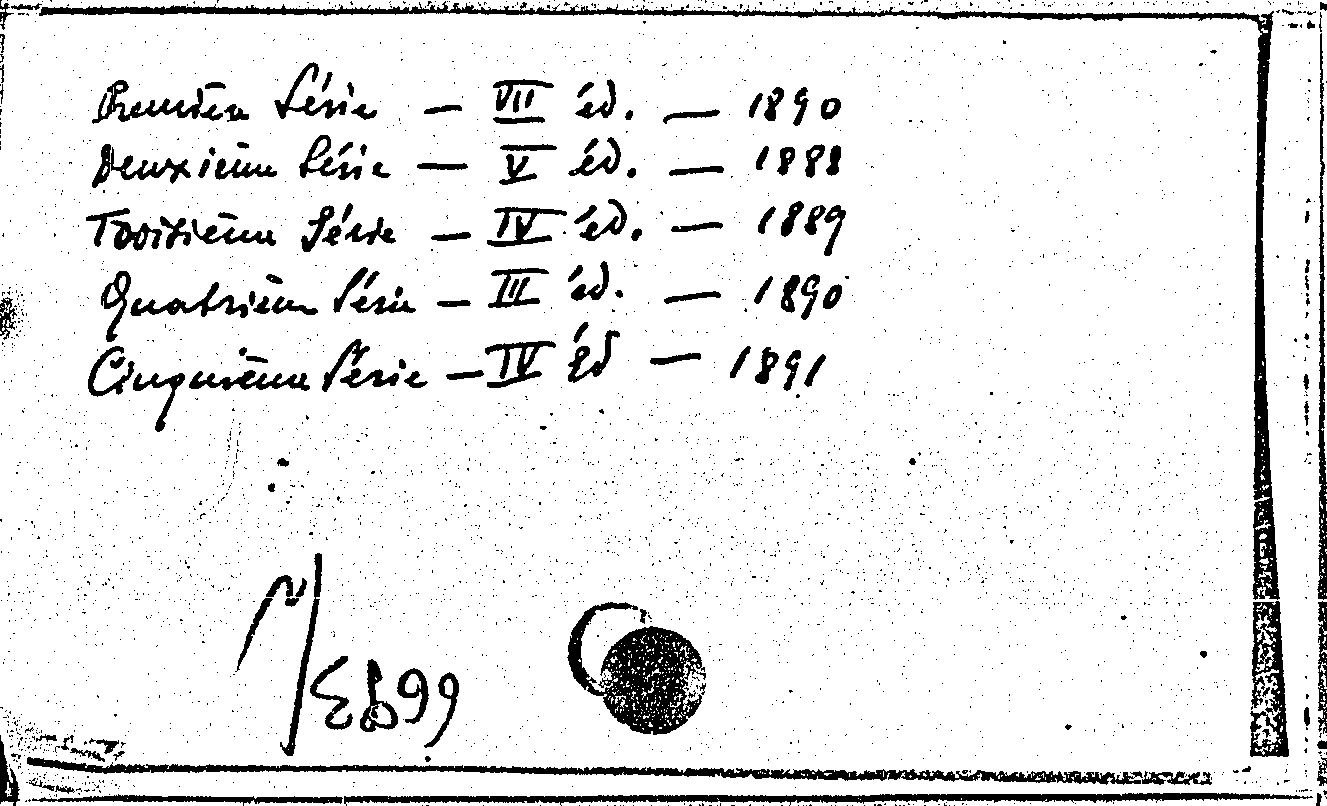 Première Série — VII éd. — 1890
Deuxième Série — V éd. — 1888
Troisième Série — IV éd. — 1889
Quatrième Série — III éd. — 1890
Cinquième Série — IV Ed — 1891